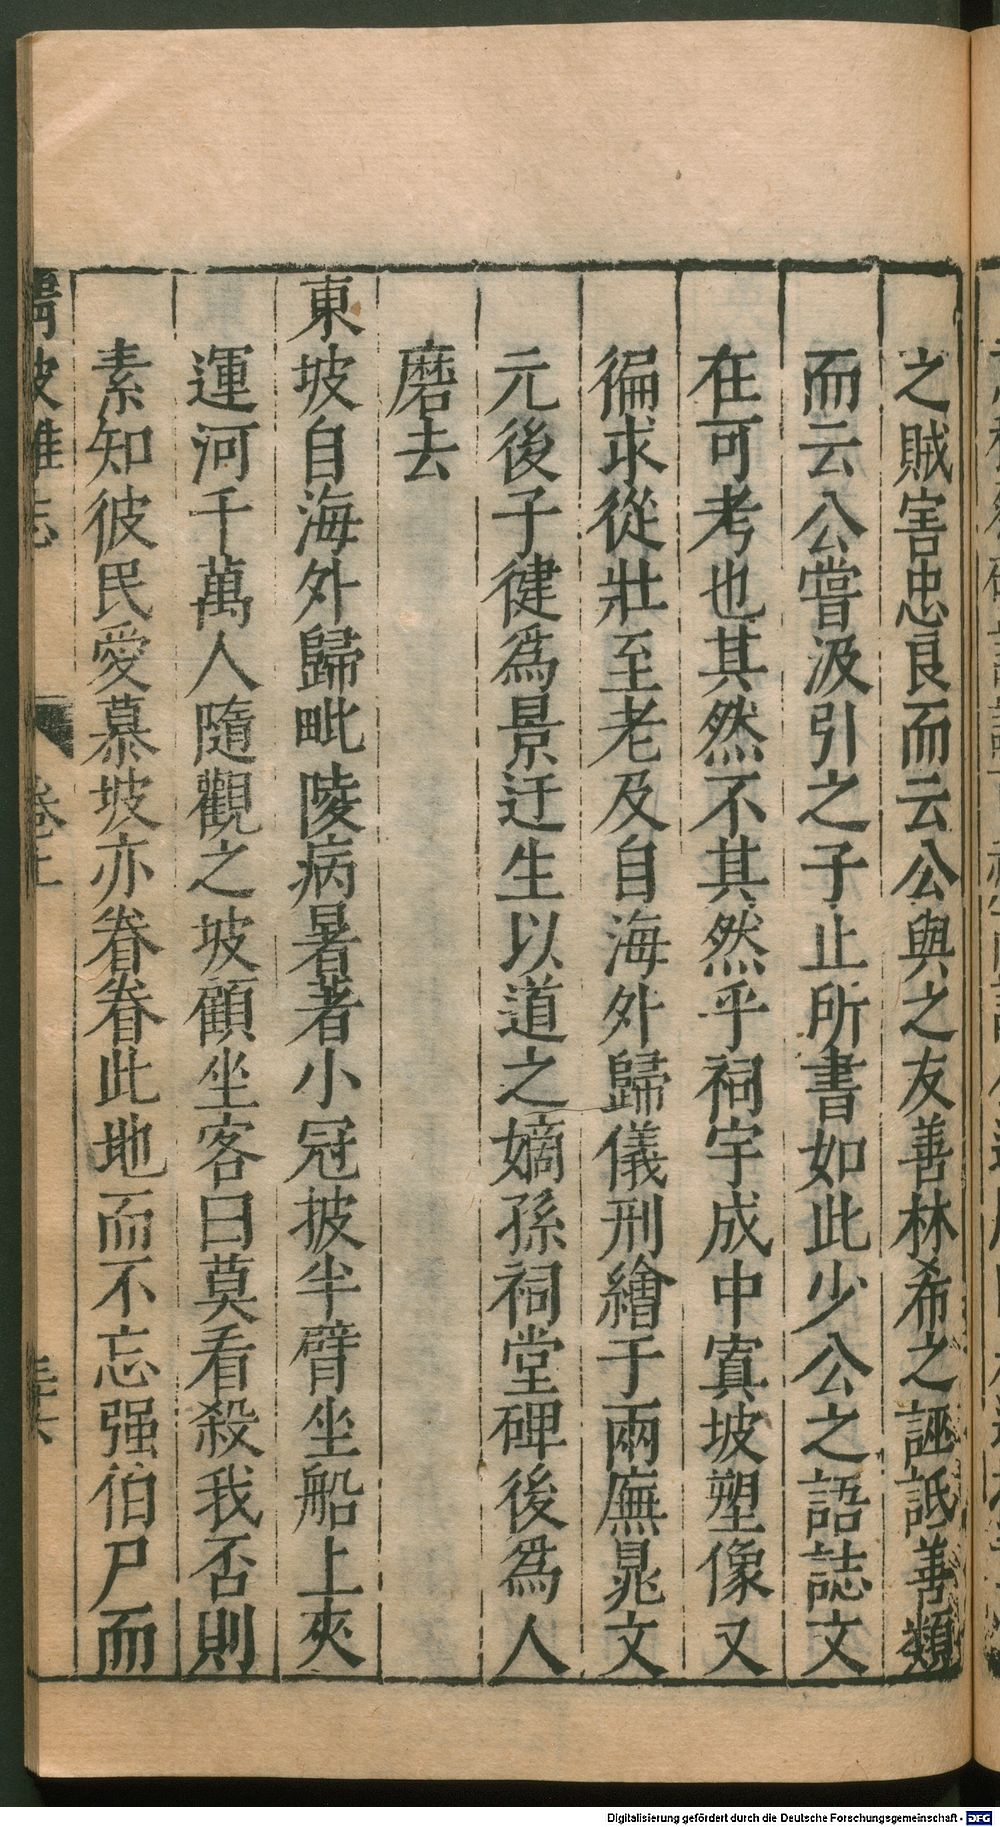 之賊害忠良而云公與之友善林希之誣詆善類
而云公嘗汲引之子止所書如此少公之語誌文
在可考也其然不其然乎祠宇成中寘坡塑像又
徧求從壯至老及自海外歸儀刑繪于兩廡晁文
元後子健爲景迂生以道之嫡孫祠堂碑後爲人
磨去
東坡自海外歸毗陵病暑著小冠披半臂坐船上夾
運河千萬人隨觀之坡顧坐客曰莫看殺我否則
素知彼民愛慕坡亦眷眷此地而不忘强伯尸而
Digitalisierung gefördert durch die Deutsche Forschungsgemeinschaft - DFG